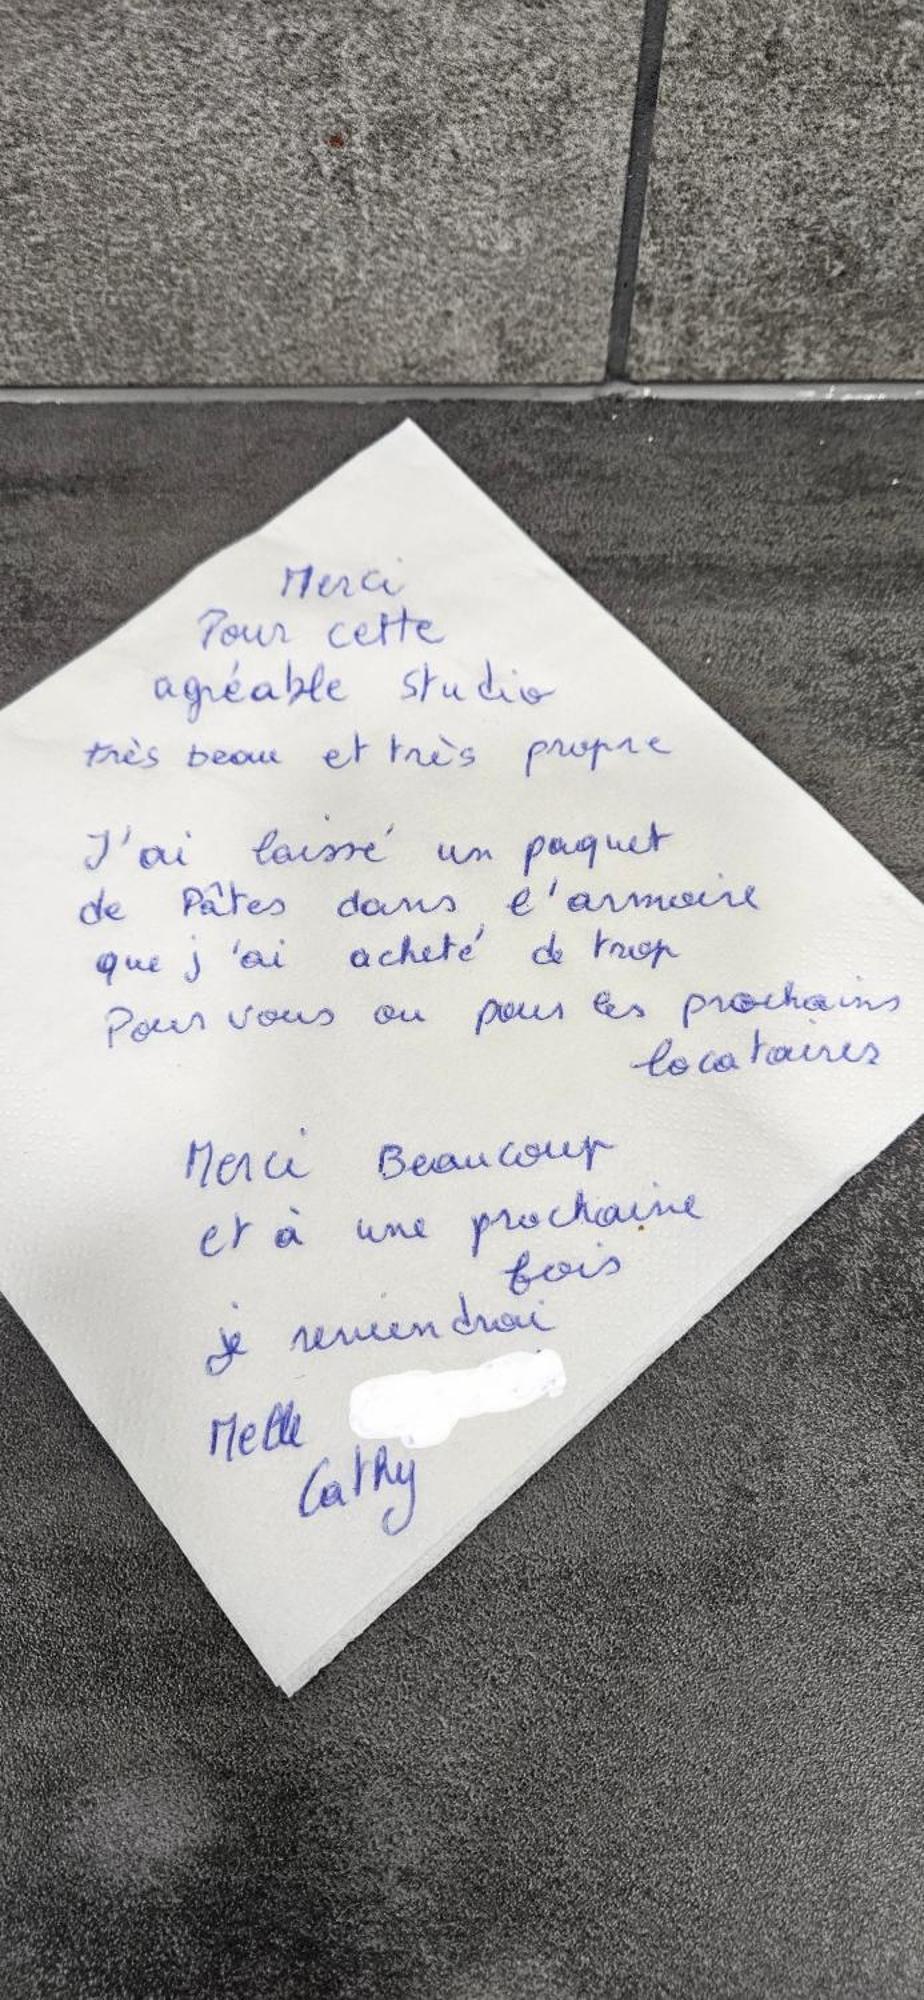 Merci
Pour cette
agréable studio
très beau et très propre
J'ai laissé un paquet
de Pâtes dans l'armoire
que j'ai acheté de trop
Pour vous ou pour les prochains
locataires
Merci Beaucoup
et à une prochaine
fois
je reviendrai
Melle
Cathy